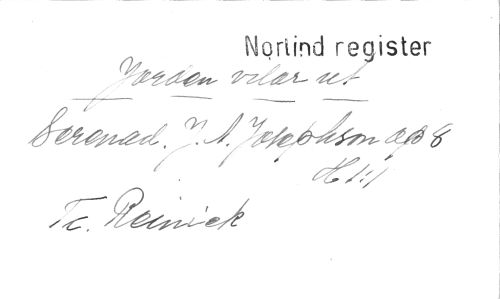 Nortind register
Jorden vilar ut
Serenad. J. A. Josephson op 8
H 1:1
Tc. Reinick